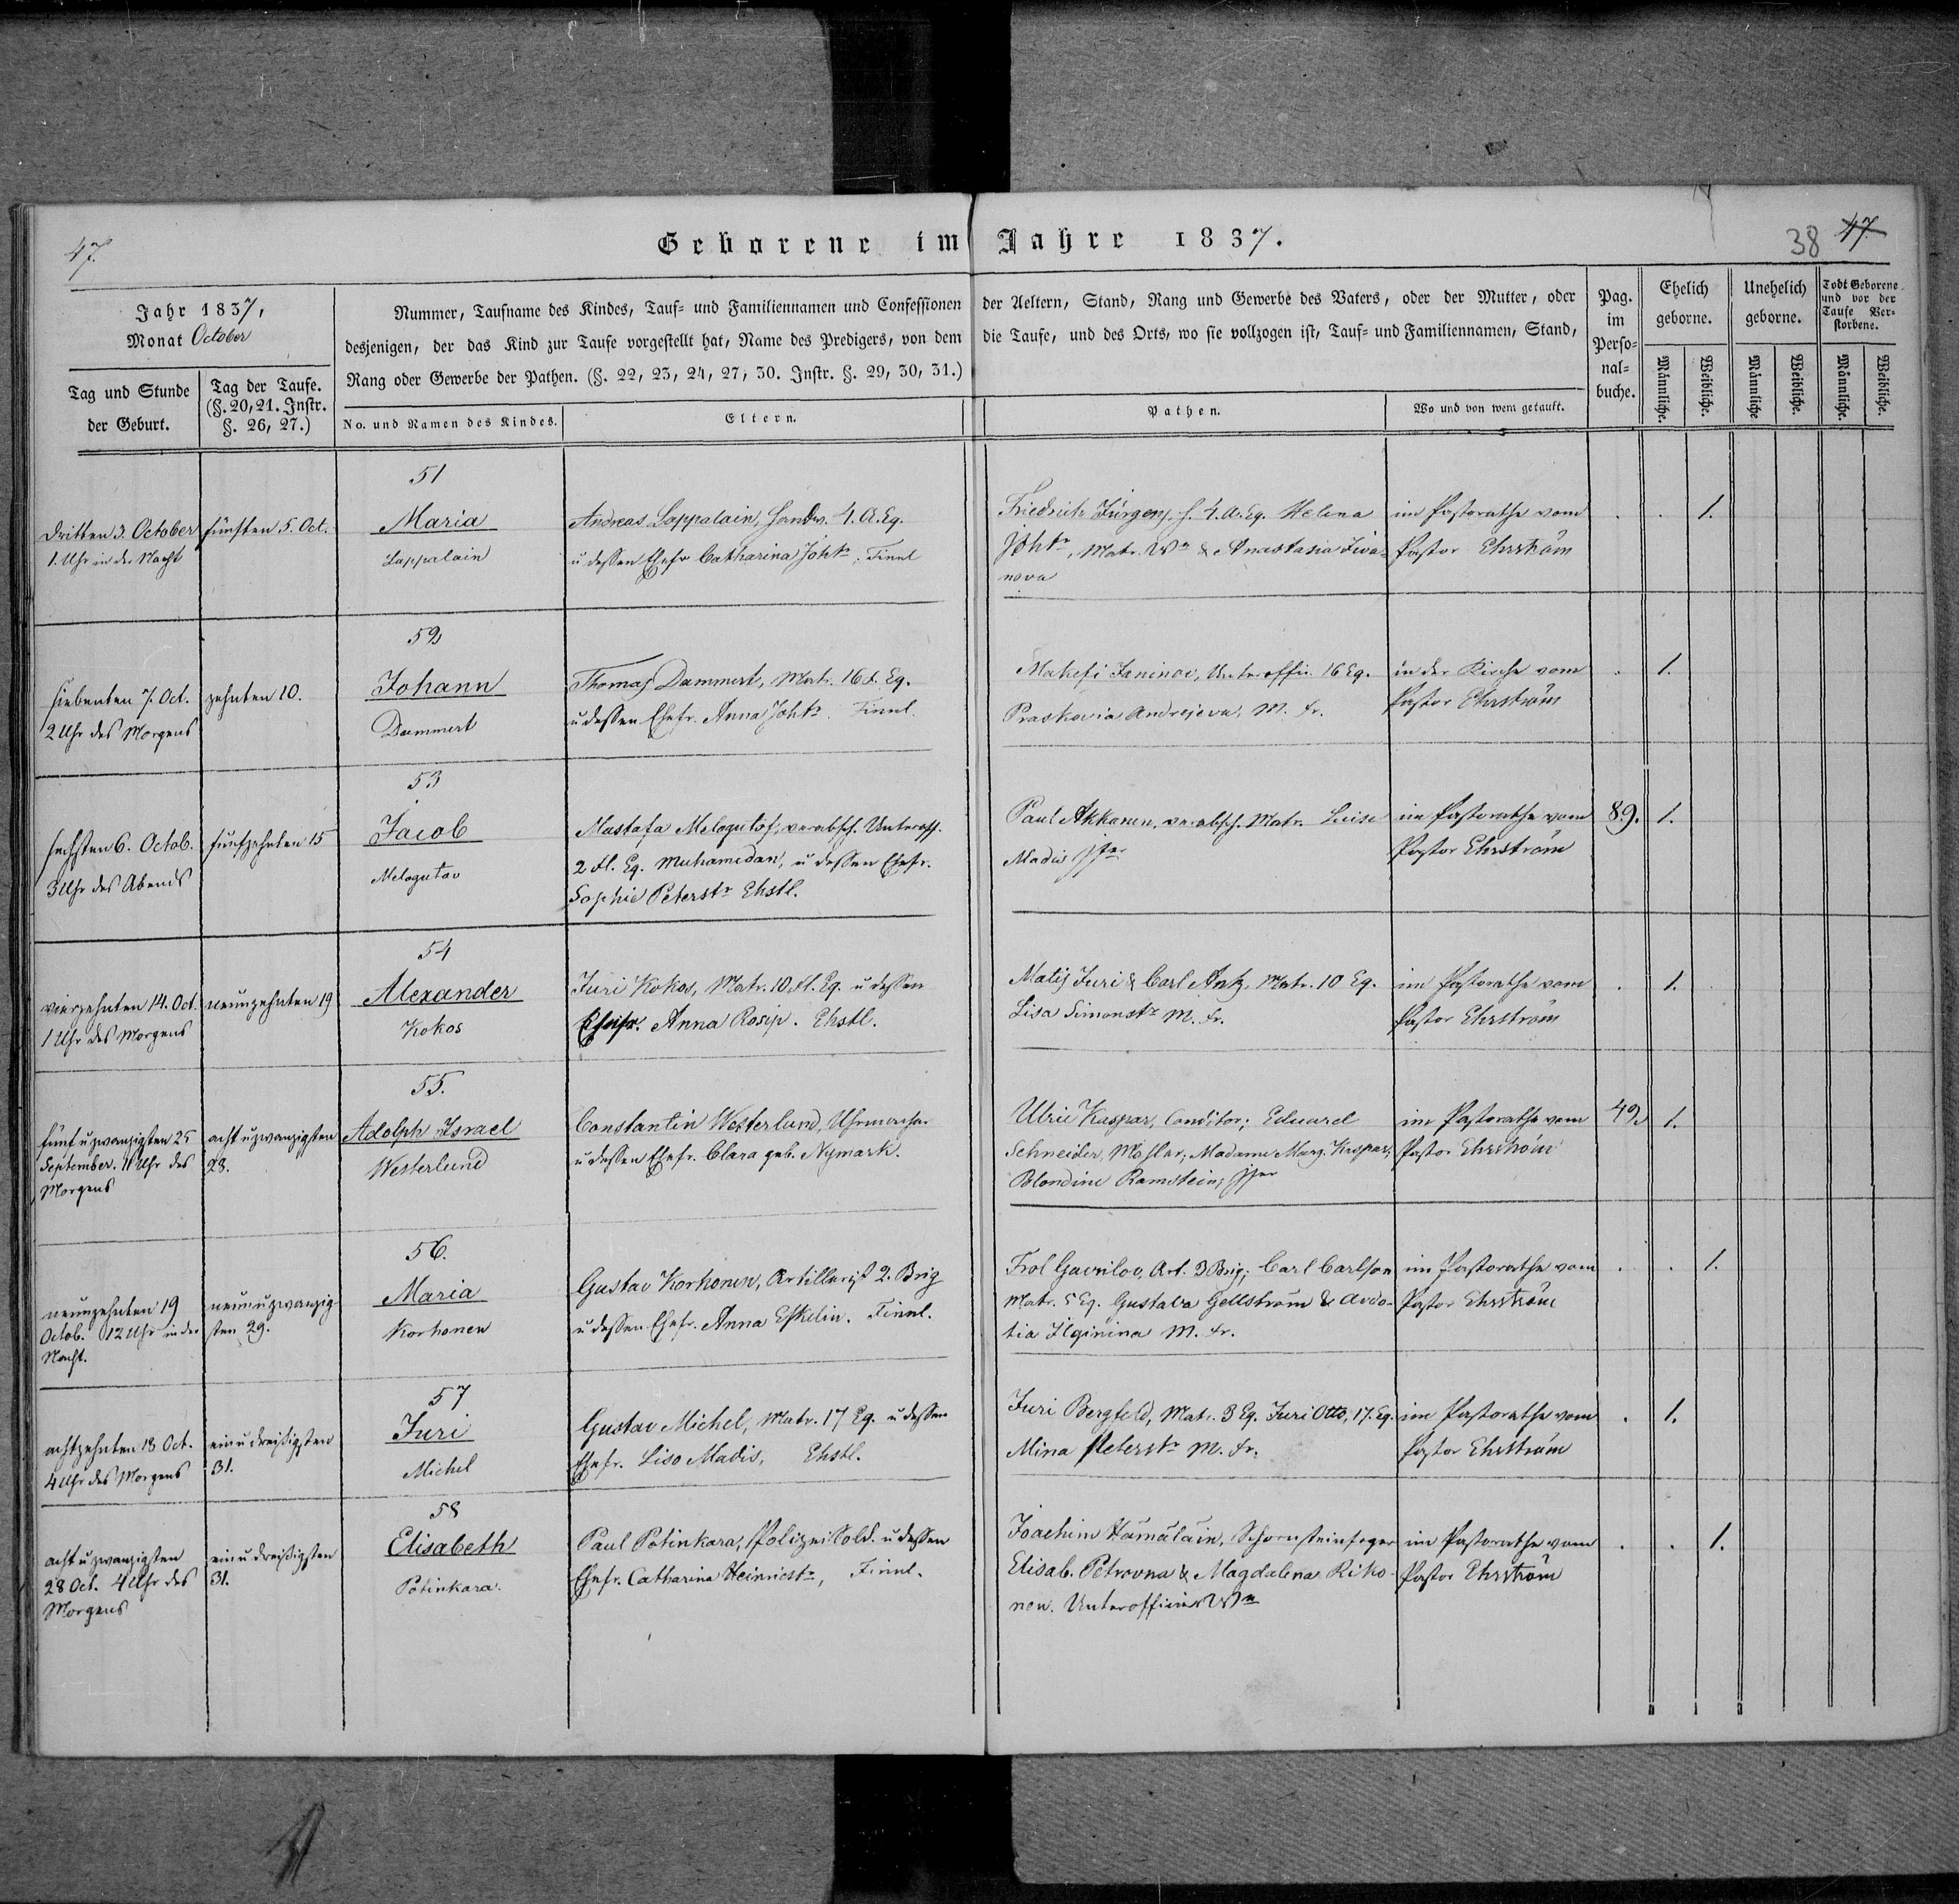 47.
Geborene im Jahre 1837.
38 47
Jahr 1837,
Monat October
Tag und Stunde
der Geburt.
Tag der Taufe.
(§. 20, 21. Instr.
§. 26, 27.)
Nummer, Taufname des Kindes, Tauf- und Familiennamen und Confessionen der Aeltern, Stand, Rang und Gewerbe des Vaters, oder der Mutter, oder
desjenigen, der das Kind zur Taufe vorgestellt hat, Name des Predigers, von dem die Taufe, und des Orts, wo sie vollzogen ist, Tauf- und Familiennamen, Stand,
Rang oder Gewerbe der Pathen. (§. 22, 23, 24, 27, 30. Instr. §. 29, 30, 31.)
No. und Namen des Kindes.
Eltern.
Pathen.
Wo und von wem getauft.
Pag.
im
Perso-
nal-
buche.
Ehelich
geborne.
Unehelich
geborne.
Todt Geborene
und vor der
Taufe Ver-
storbene.
Männliche.
Weibliche.
Männliche
Weibliche.
Männliche.
Weibliche.
dritten 3. October
1. Uhr in der Nacht
fünften 5. Oct.
51
Maria
Lappalain
Andreas Lappalain, Handw. 4. A. Eq.
u dessen Ehefr Catharina Joht., Finnl
Friedrich Jürgens, H. 4. A. Eq. Helena
Joht., Matr. We & Anastasia Jiva-
nova
im Pastorathe vom
Pastor Ehrström
. . 1.
siebenten 7. Oct.
2 Uhr des Morgens
zehnten 10.
52
Johann
Dammert
Thomas Dammert, Matr. 16 f. Eq.
u dessen Ehefr. Anna Joht. Finnl.
Makefi Janinov, Unteroffic. 16 Eq.
Praskovia Andrejeva, M. fr.
in der Kirche vom
Pastor Ehrström
. 1.
sechsten 6. Octob.
3 Uhr des Abends
fünfzehnten 15
53
Jacob
Melogutov
Mastafa Melogutof, verabsch. Unteroff.
2 fl. Eq. Muhamedan, u dessen Ehefr.
Sophie Peterst. Ehstl.
Paul Akkanen, verabsch. Matr. Luise
Madis Jfer
im Pastorathe vom
Pastor Ehrström
89. 1.
vierzehnten 14. Oct.
1 Uhr des Morgens
neunzehnten 19
54
Alexander
Kokos
Juri Kokos, Matr. 10 fl. Eq. u dessen
Ehefr. Anna Rosip. Ehstl.
Matis Juri & Carl Antz, Matr. 10 Eq.
Lisa Simonst. M. fr.
im Pastorathe vom
Pastor Ehrström
. 1.
fünf u zwanzigsten 25
September. 11 Uhr des
Morgens
acht u zwanzigsten
28.
55.
Adolph Israel
Westerlund
Constantin Westerlund, Uhrmacher
u dessen Ehefr. Clara geb. Nymark.
Ulric Kaspar, Conditor; Eduard
Schneider, Madame Marg. Kaspar;
Blondine Ramstein, Jfer
im Pastorathe vom
Pastor Ehrström
49. 1.
neunzehnten 19
Octob. 12 Uhr in der
Nacht.
neun u zwanzig
sten 29.
56.
Maria
Korhonen
Gustav Korhonen, Artillerist 2. Brig
u dessen Ehefr. Anna Eskelin. Finnl.
Frol Gavrilov, Art. 3 Brig; Carl Carlson
Matr. 5 Eq. Gustava Gellström & Avdo-
tia Ilginina M. fr.
im Pastorathe vom
Pastor Ehrström
. . 1.
achtzehnten 18 Oct.
4 Uhr des Morgens
ein u dreißigsten
31.
57
Juri
Michel
Gustav Michel, Matr. 17 Eq. u dessen
Ehefr. Liso Madis, Ehstl.
Juri Bergfeld, Matr. 3 Eq. Juri Otto, 17. Eq.
Mina Peterst. M. fr.
im Pastorathe vom
Pastor Ehrström
. 1.
acht u zwanzigsten
28 Oct. 4 Uhr des
Morgens
ein u dreißigsten
31.
58
Elisabeth
Potinkara.
Paul Potinkara, PolizeiSold. u dessen
Ehefr. Catharina Heinricst., Finnl.
Joachim Hämäläin, Schornsteinfeger
Elisab. Petrovna & Magdalena Riko-
nen. Unterofficiers We
im Pastorathe vom
Pastor Ehrström
. . 1.